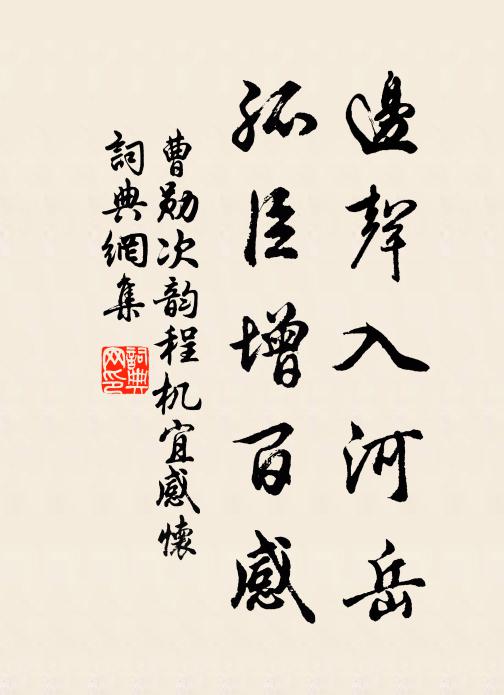 邊聲入河岳
孤臣增百感
曹勋次韵程机宜感懷
詞典網集
詞典
网印